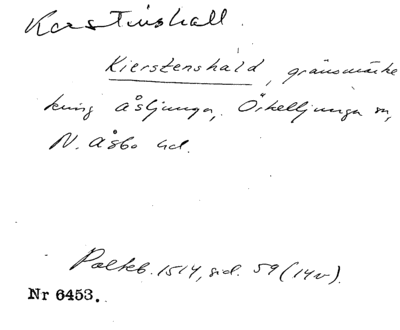 Kerstinshall.
Kierstenshald, gränsmärke
kring Åsljunga, Örkelljunga sn,
N. Åsbo hd.
Palteb. 1514, sid. 59 (14v).
Nr 6453.